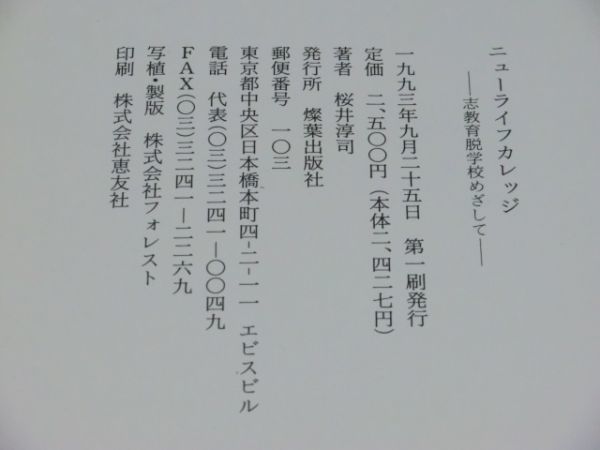 ニューライフカレッジ
――志教育脱学校めざして――
一九九三年九月二十五日　第一刷発行
定価　二、五〇〇円（本体二、四二七円）
著者　桜井淳司
発行所　燦葉出版社
郵便番号　一〇三
東京都中央区日本橋本町四−二−一一　エビスビル
電話　代表（〇三）三二四一―〇〇四九
ＦＡＸ（〇三）三二四一―二二六九
写植・製版　株式会社フォレスト
印刷　株式会社恵友社